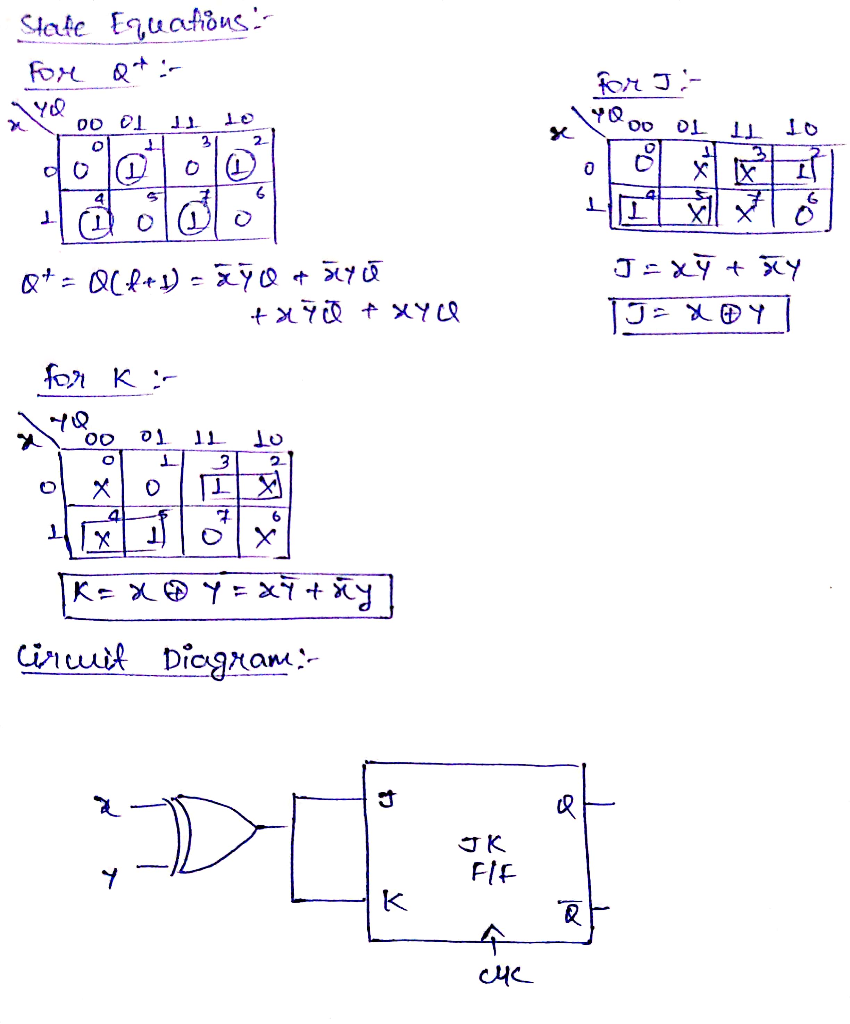 State Equations:-
For Q⁺ :-
x \ YQ 00 01 11 10
0 0⁰ 1¹ 0³ 1²
1 1⁴ 0⁵ 1⁷ 0⁶
Q⁺ = Q(t+1) = x̄ȳQ + x̄yQ̄
+ xȳQ̄ + xyQ
For J :-
x \ YQ 00 01 11 10
0 0⁰ x¹ x³ 1²
1 1⁴ x⁵ x⁷ 0⁶
J = xȳ + x̄y
J = x ⊕ y
for K :-
x \ YQ 00 01 11 10
0 x⁰ 0¹ 1³ x²
1 x⁴ 1⁵ 0⁷ x⁶
K = x ⊕ y = xȳ + x̄y
Circuit Diagram:-
x
y
J
Q
JK
F/F
K
Q̄
CLK